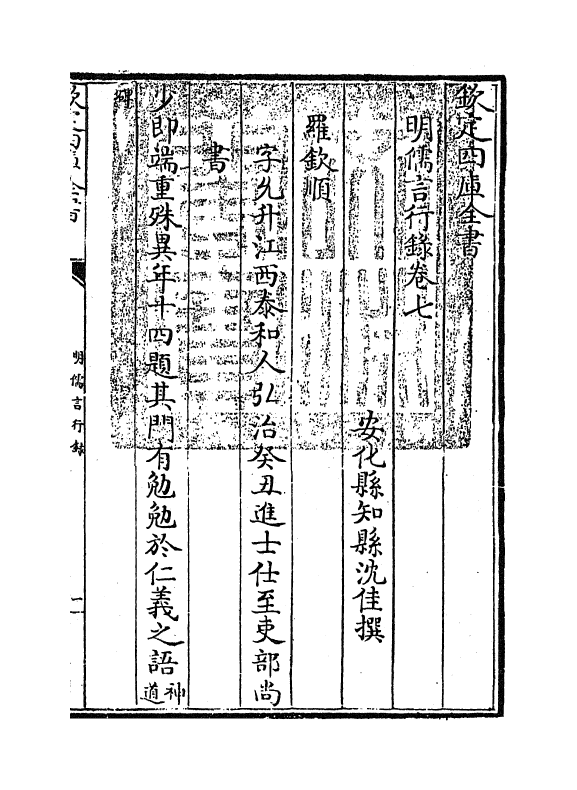 欽定四庫全書
明儒言行錄卷七
安化縣知縣沈佳撰
羅欽順
字允升江西泰和人弘治癸丑進士仕至吏部尚
書
少即端重殊異年十四題其門有勉勉於仁義之語神道
碑
欽定四庫全書
明儒言行錄
一